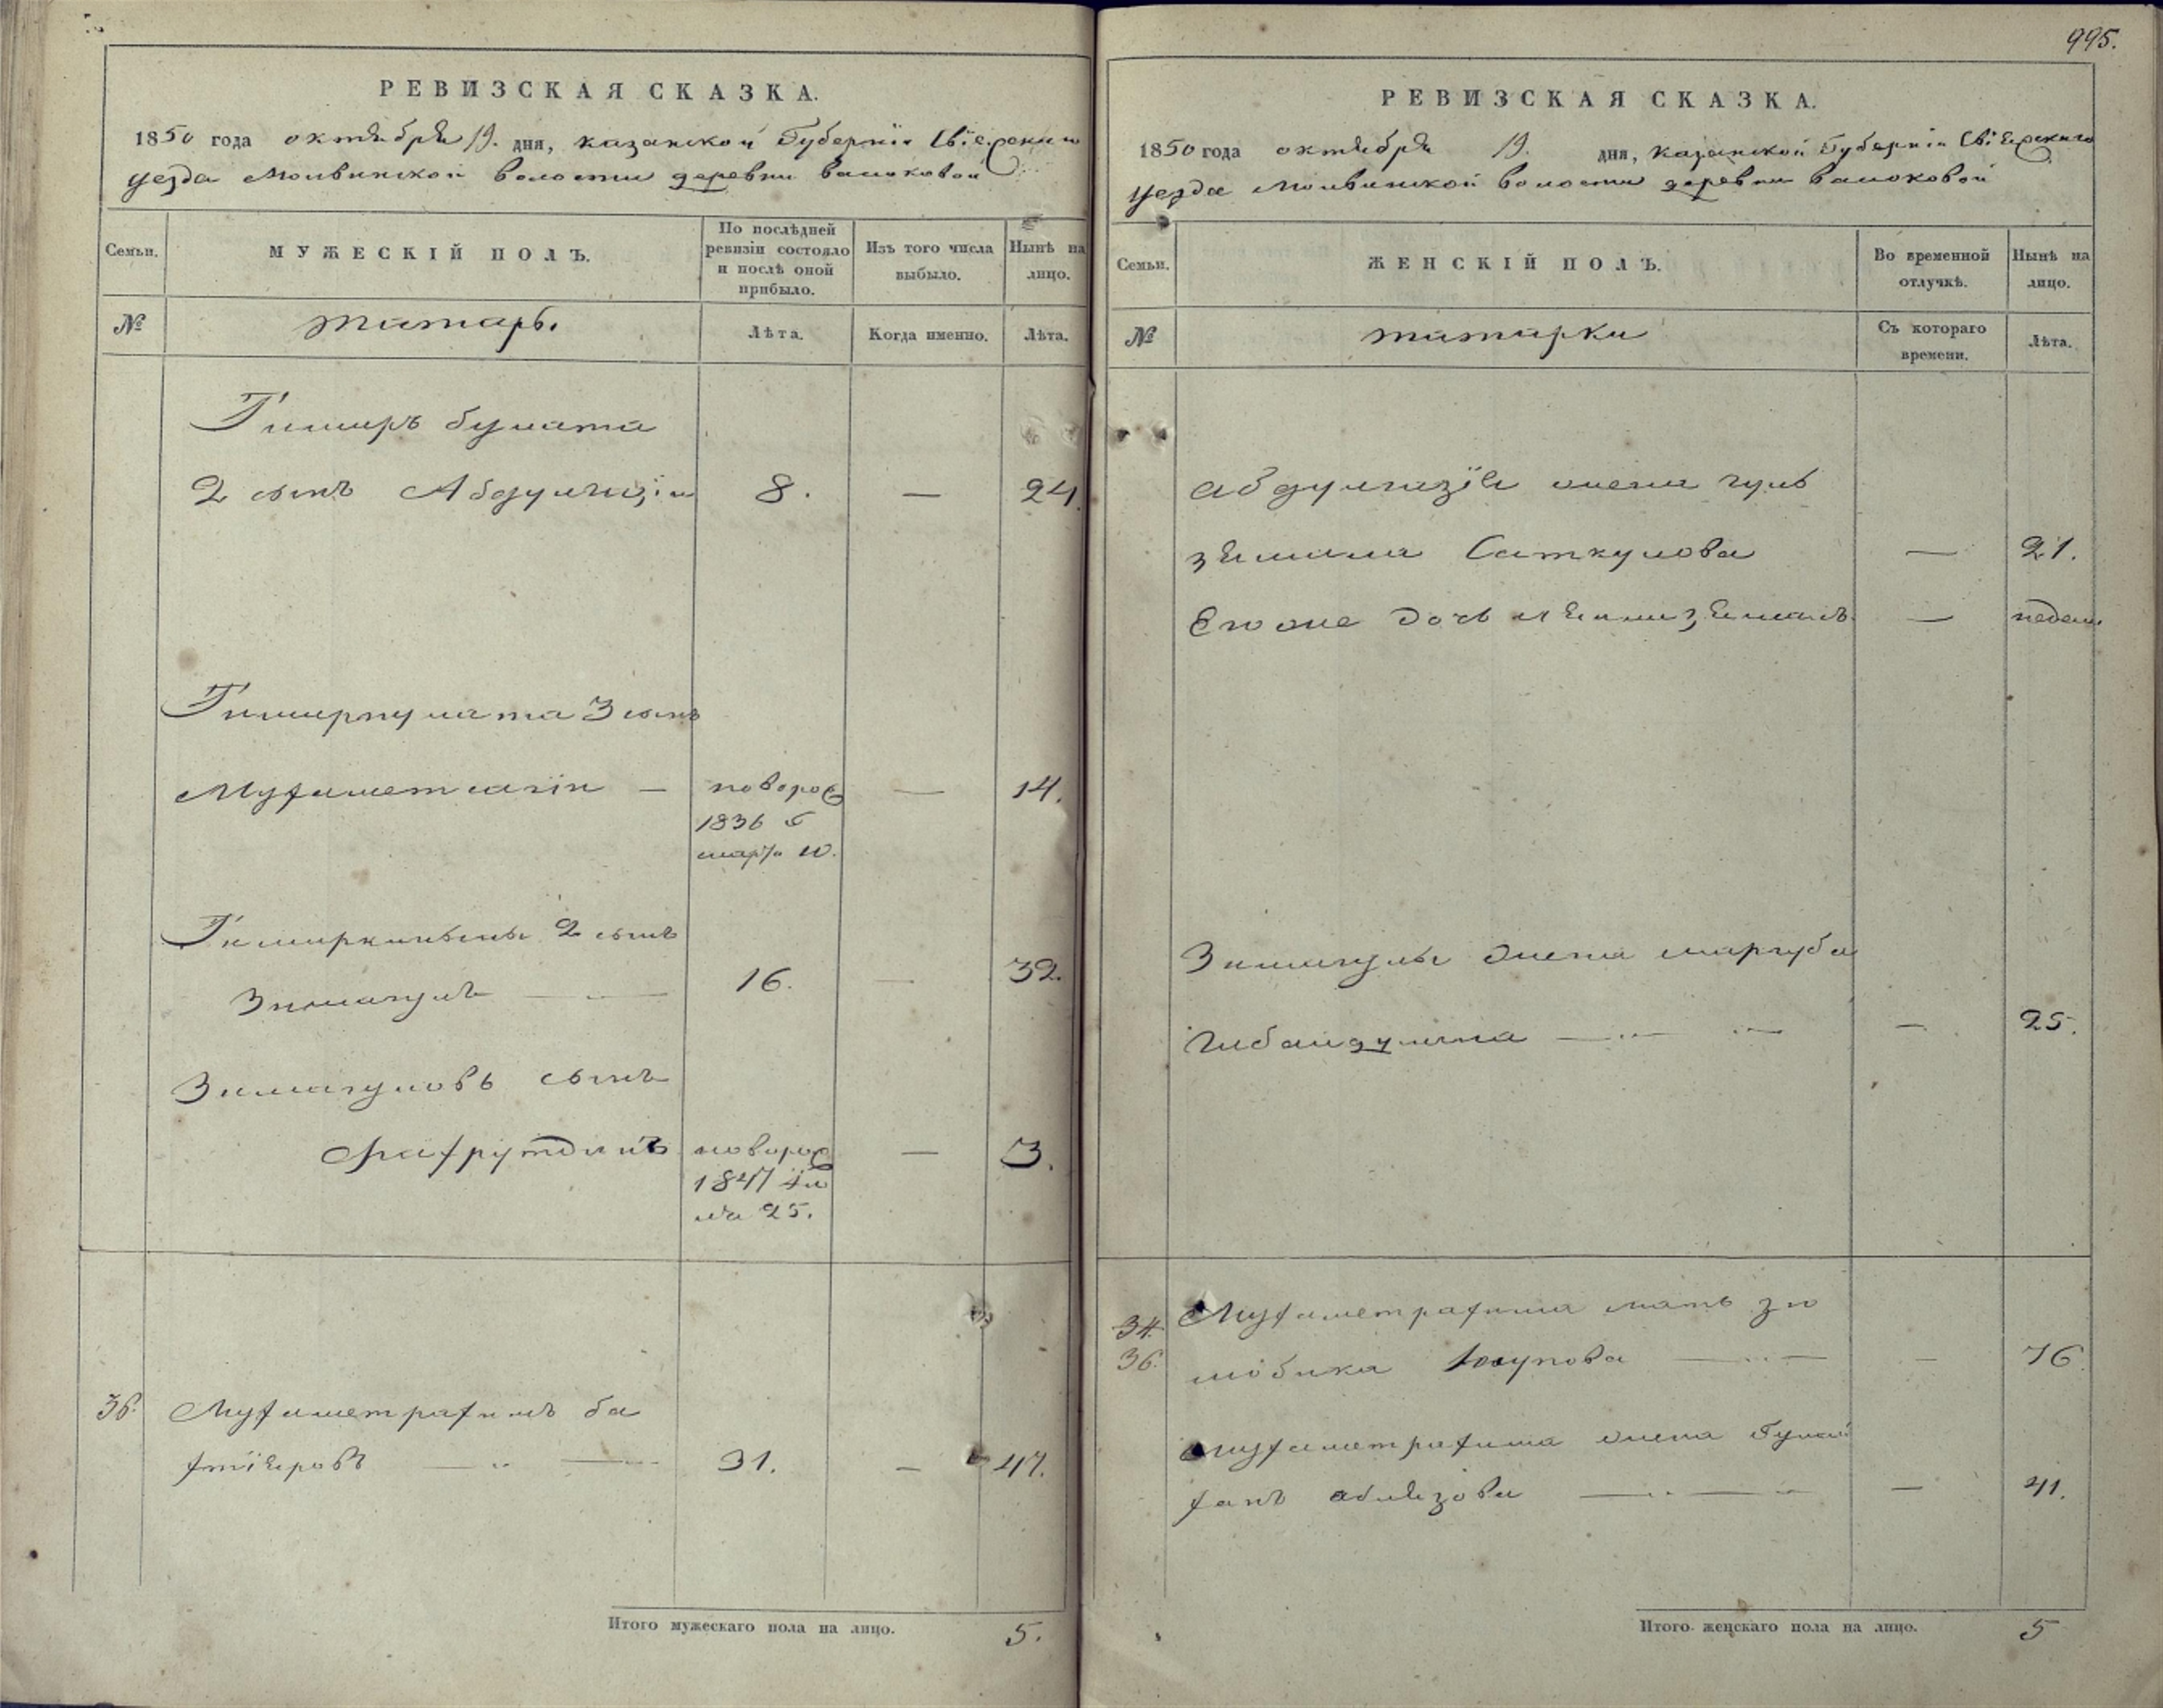 РЕВИЗСКАЯ СКАЗКА.
1850 года октября 19. дня, казанской Губернiи Свiяжскаго
уезда Молвинской волости деревни
Семьи.
МУЖЕСКІЙ ПОЛЪ.
По послѣдней ревизіи состояло и послѣ оной прибыло.
Изъ того числа выбыло.
Нынѣ на лицо.
№
татаръ.
Лѣта.
Когда именно.
Лѣта.
Тимиръ булата
2 сынъ Абдулгазiи 8. — 24.
Тимирпулата 3 сынъ
Мухаметсагiн — новорож — 14.
1836 г
марта 10.
Тимиркильды 2 сынъ
Зимагулъ — 16. — 32.
Зимагуловъ сынъ
Фахрутдинъ новорож — 3.
1847
25.
36. Мухаметрахимъ ба
хтiяровъ — 31. — 47.
Итого мужескаго пола на лицо. 5.
995.
РЕВИЗСКАЯ СКАЗКА.
1850 года октября 19. дня, казанской Губернiи Свiяжскаго
уезда Молвинской волости деревни
Семьи.
ЖЕНСКІЙ ПОЛЪ.
Во временной отлучкѣ.
Нынѣ на лицо.
№
татарки
Съ котораго времени.
Лѣта.
абдулгазiя жена гуль
зямила Саткулова — 21.
Его же дочь —
Зимагулы жена маргуба
— 25.
34.
36.
Мухаметрахима мать зю
мбика Юсупова — 76
мухаметрахима жена
ханъ аблязова — 41.
Итого женскаго пола на лицо. 5